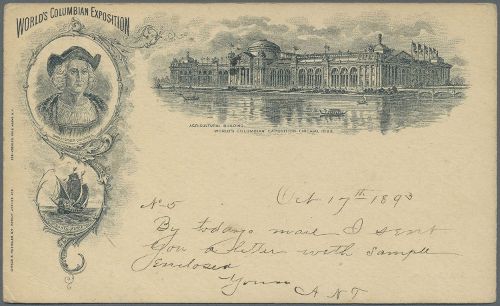 WORLD'S COLUMBIAN EXPOSITION
AGRICULTURAL BUILDING.
WORLD'S COLUMBIAN EXPOSITION CHICAGO, 1893.
No 5
Oct 17th 1893
By todays mail I sent
you a letter with sample
enclosed
Yours
A N T